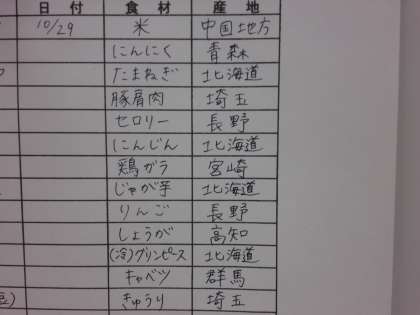 日付 食材 産地
10/29 米 中国地方
にんにく 青森
たまねぎ 北海道
豚肩肉 埼玉
セロリー 長野
にんじん 北海道
鶏ガラ 宮崎
じゃが芋 北海道
りんご 長野
しょうが 高知
(冷)グリンピース 北海道
キャベツ 群馬
きゅうり 埼玉